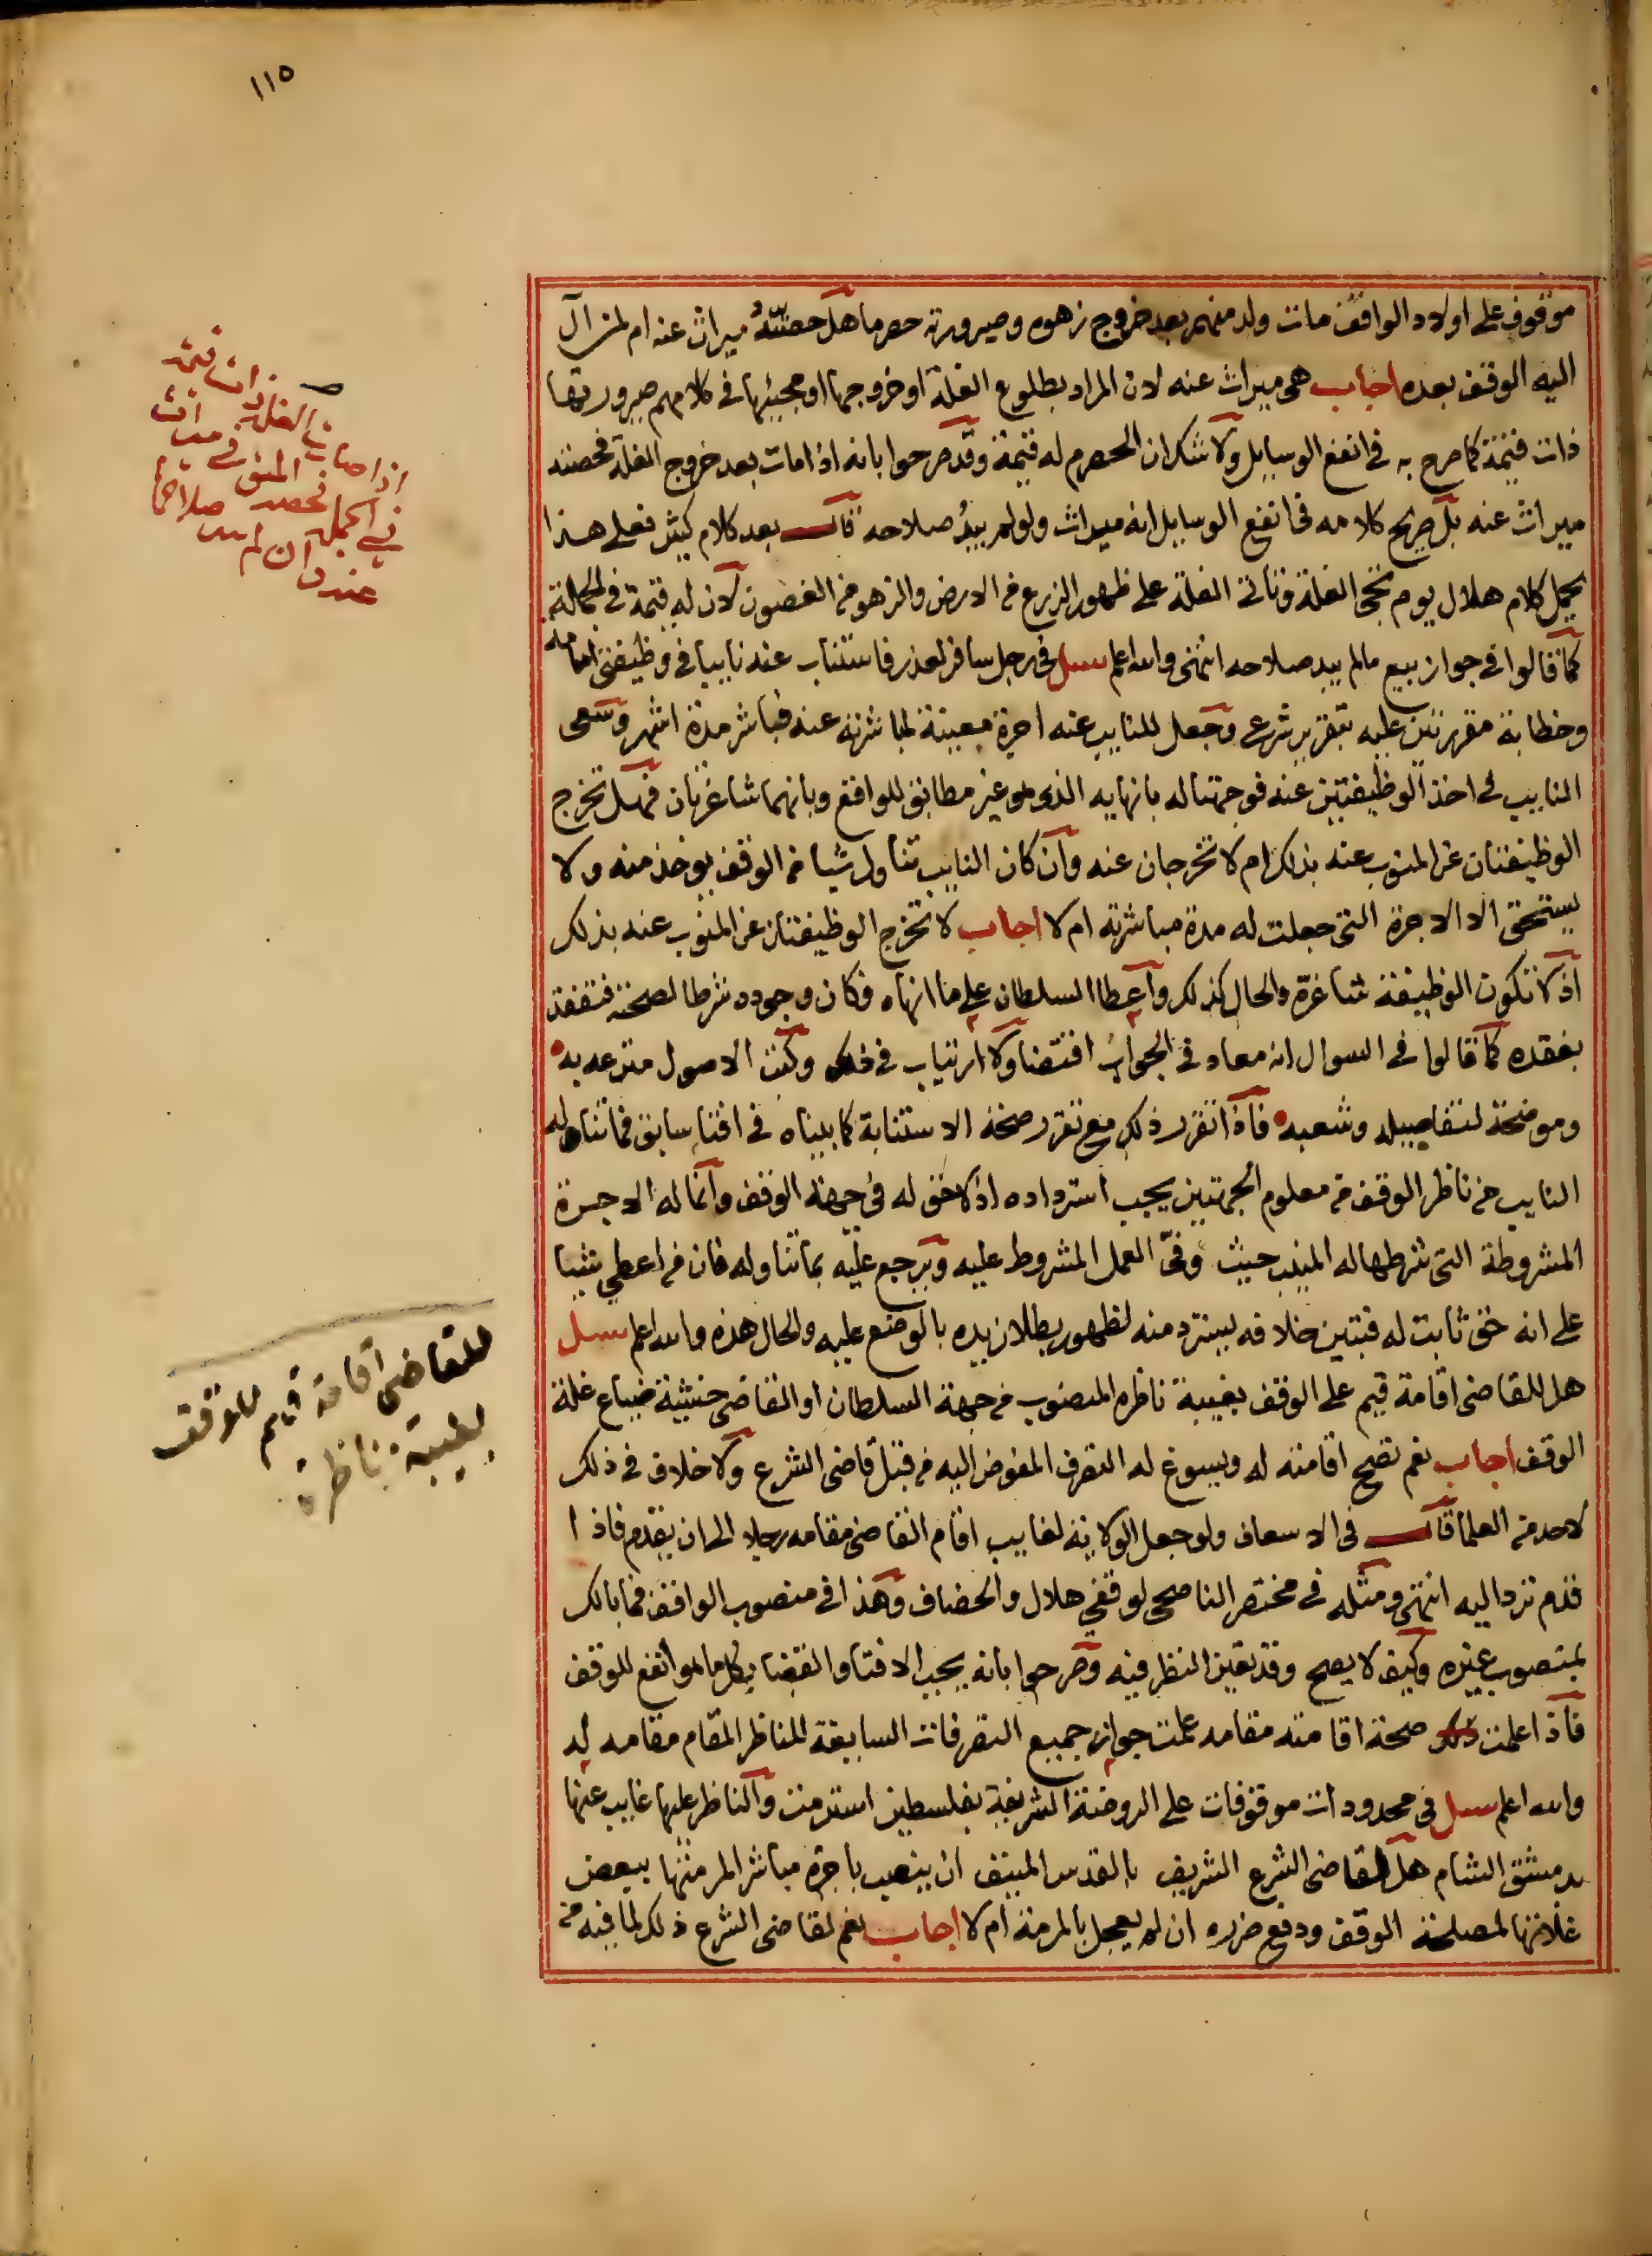 ١١٥
موقوف على اولاد الواقف مات ولد منهم بعد خروج زهوه وصيرورته حصرما هل حصته ميراث عنه ام لمن آل
اليه الوقف بعده اجاب هي ميراث عنه لان المراد بطلوع الغلة او خروجها او مجيئها في كلامهم صيرورتها
ذات قيمة كما صرح به في انفع الوسايل ولا شك ان الحصرم له قيمة وقد صرحوا بانه اذا مات بعد خروج الغلة فحصته
ميراث عنه بل صريح كلامه في انفع الوسايل انه ميراث ولو لم يبد صلاحه قال بعد كلام كثير فعلى هذا
يحمل كلام هلال يوم تجئ الغلة وتاتي الغلة على ظهور الزرع من الارض والزهو من الغصون لان له قيمة في الجملة
كما قالوا في جواز بيع مالم يبد صلاحه انتهى والله اعلم سئل في رجل سافر لعذر فاستناب عنه نايبا في وظيفتي امامه
وخطابة مقررتين عليه بتقرير شرعي وجعل للنايب عنه اجرة معينة لمباشرته عنه فباشر مدة اشهر وسعى
النايب في اخذ الوظيفتين عنه فوجهتا له بانهايه الذي هو غير مطابق للواقع وبانهما شاغرتان فهل تخرج
الوظيفتان عن المنوب عنه بذلك ام لا تخرجان عنه وان كان النايب تناول شيا من الوقف يوخذ منه ولا
يستحق الا الاجرة التي جعلت له مدة مباشرته ام لا اجاب لا تخرج الوظيفتان عن المنوب عنه بذلك
اذ لا تكون الوظيفة شاغرة والحال كذلك واعطا السلطان على ما انهاه فكان وجوده شرطا لصحته فتفقد
بفقده كما قالوا في السوال انه معاد في الجواب اقتضا ولا ارتياب في ذلك وكتب الاصول مترعه به
وموضحة لتفاصيله وشعبه فاذا تقرر ذلك مع تقرر صحة الاستنابة كما بيناه في افتا سابق فما تناوله
النايب من ناظر الوقف من معلوم الجهتين يجب استرداده اذ لا حق له في جهة الوقف وانما له الاجرة
المشروطة التي شرطها له المنيب حيث وفى العمل المشروط عليه ويرجع عليه بما تناوله فان من اعطي شيا
على انه حق ثابت له فتبين خلافه يسترد منه لظهور بطلان يده بالوضع عليه والحال هذه والله اعلم سئل
هل للقاضي اقامة قيم على الوقف بغيبة ناظره المنصوب من جهة السلطان او القاضي خشية ضياع غلة
الوقف اجاب نعم تصح اقامته له ويسوغ له التصرف المفوض اليه من قبل قاضي الشرع ولا خلاف في ذلك
لاحد من العلما قال في الاسعاف ولو جعل الولاية لغايب اقام القاضي مقامه رجلا الى ان يقدم فاذا
قدم ترد اليه انتهى ومثله في مختصر الناصحي لوقفي هلال والخصاف وهذا في منصوب الواقف فما بالك
بمنصوب غيره وكيف لا يصح وقد تعين النظر فيه وصرحوا بانه يجب الافتا والقضا بكل ما هو انفع للوقف
فاذا علمت صحة اقامته مقامه علمت جواز جميع التصرفات السابقة للناظر المقام مقامه له
والله اعلم سئل في محدودات موقوفات على الروضة الشريفة بفلسطين استرمت والناظر عليها غايب عنها
بدمشق الشام هل لقاضي الشرع الشريف بالقدس المنيف ان ينصب باجرة مباشرا لمرمتها ببعض
غلاتها لمصلحة الوقف ودفع ضرره ان لم يعجل بالمرمة ام لا اجاب نعم لقاضي الشرع ذلك لما فيه من
اذا صارت الغلة ذات قيمة
في الجملة فحصة
عنه وان لم يبد صلاحها
للقاضي اقامة قيم للوقف
بغيبة ناظره